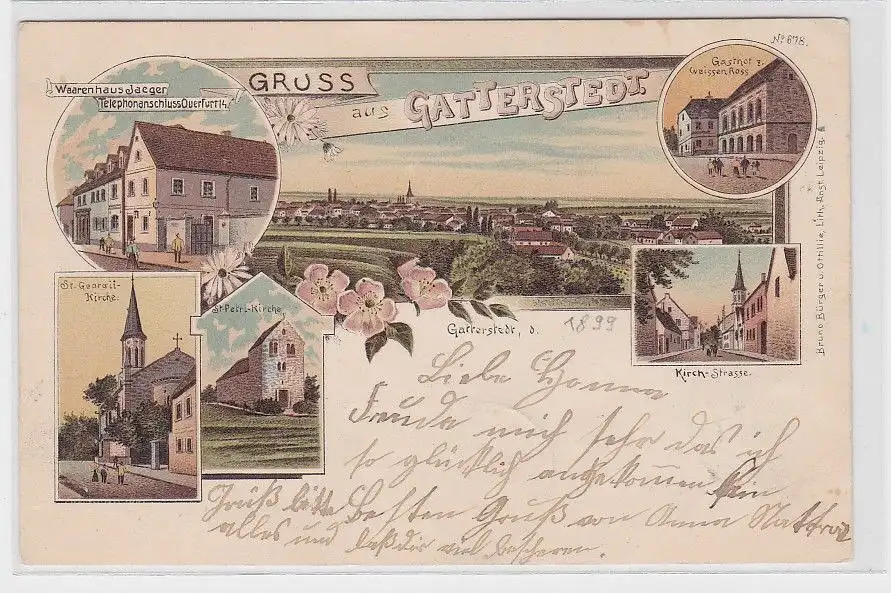 No 678.
Waarenhaus Jaeger
Telephonanschluss Querfurt 14.
GRUSS
aus GATTERSTEDT.
Gasthof z.
weissen Ross
St. Georgii-
Kirche.
St. Petri-Kirche
Kirch-Strasse.
Bruno Bürger u. Ottillie, Lith. Anst. Leipzig.
Gatterstedt, d. 1899
Liebe
Freude mich sehr das ich
so glücklich angekommen bin
Besten Gruß von Anna
Grüß bitte
alles und laß dir viel bescheren.